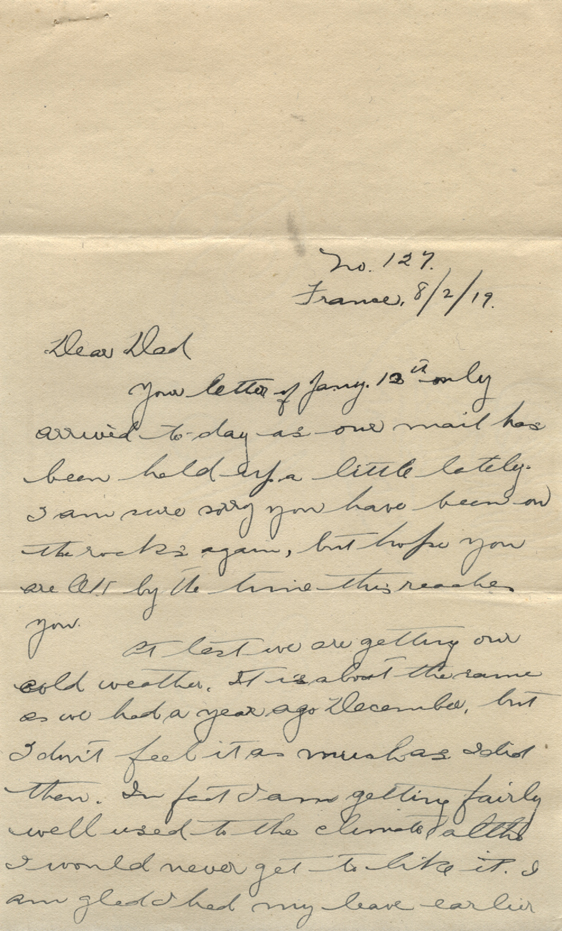 No. 127.
France, 8/2/19.
Dear Dad
Your letter of Jany. 13th only
arrived to-day as our mail has
been held up a little lately.
I am sure sorry you have been on
the rocks again, but hope you
are OK by the time this reaches
you.
At last we are getting our
cold weather. It is about the same
as we had a year ago December, but
I don't feel it as much as I did
then. In fact I am getting fairly
well used to the climate altho
I would never get to like it. I
am glad I had my leave earlier